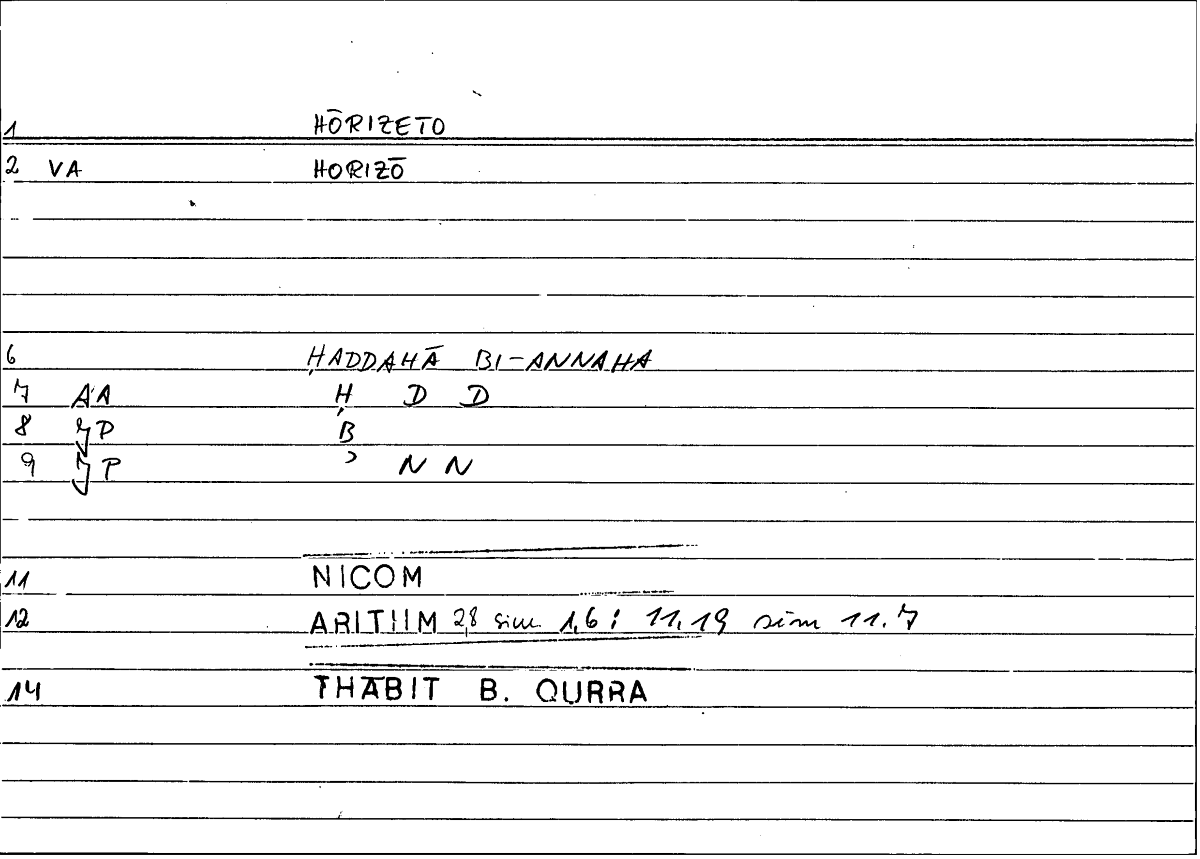 1 HŌRIZETO
2 VA HORIZŌ
6 ḤADDAHĀ BI-ANNAHA
7 AA Ḥ D D
8 JP B
9 JP ʾ N N
11 NICOM
12 ARITIIM 2,8 sim 1,6 : 11.19 sim 11.7
14 THĀBIT B. QURRA